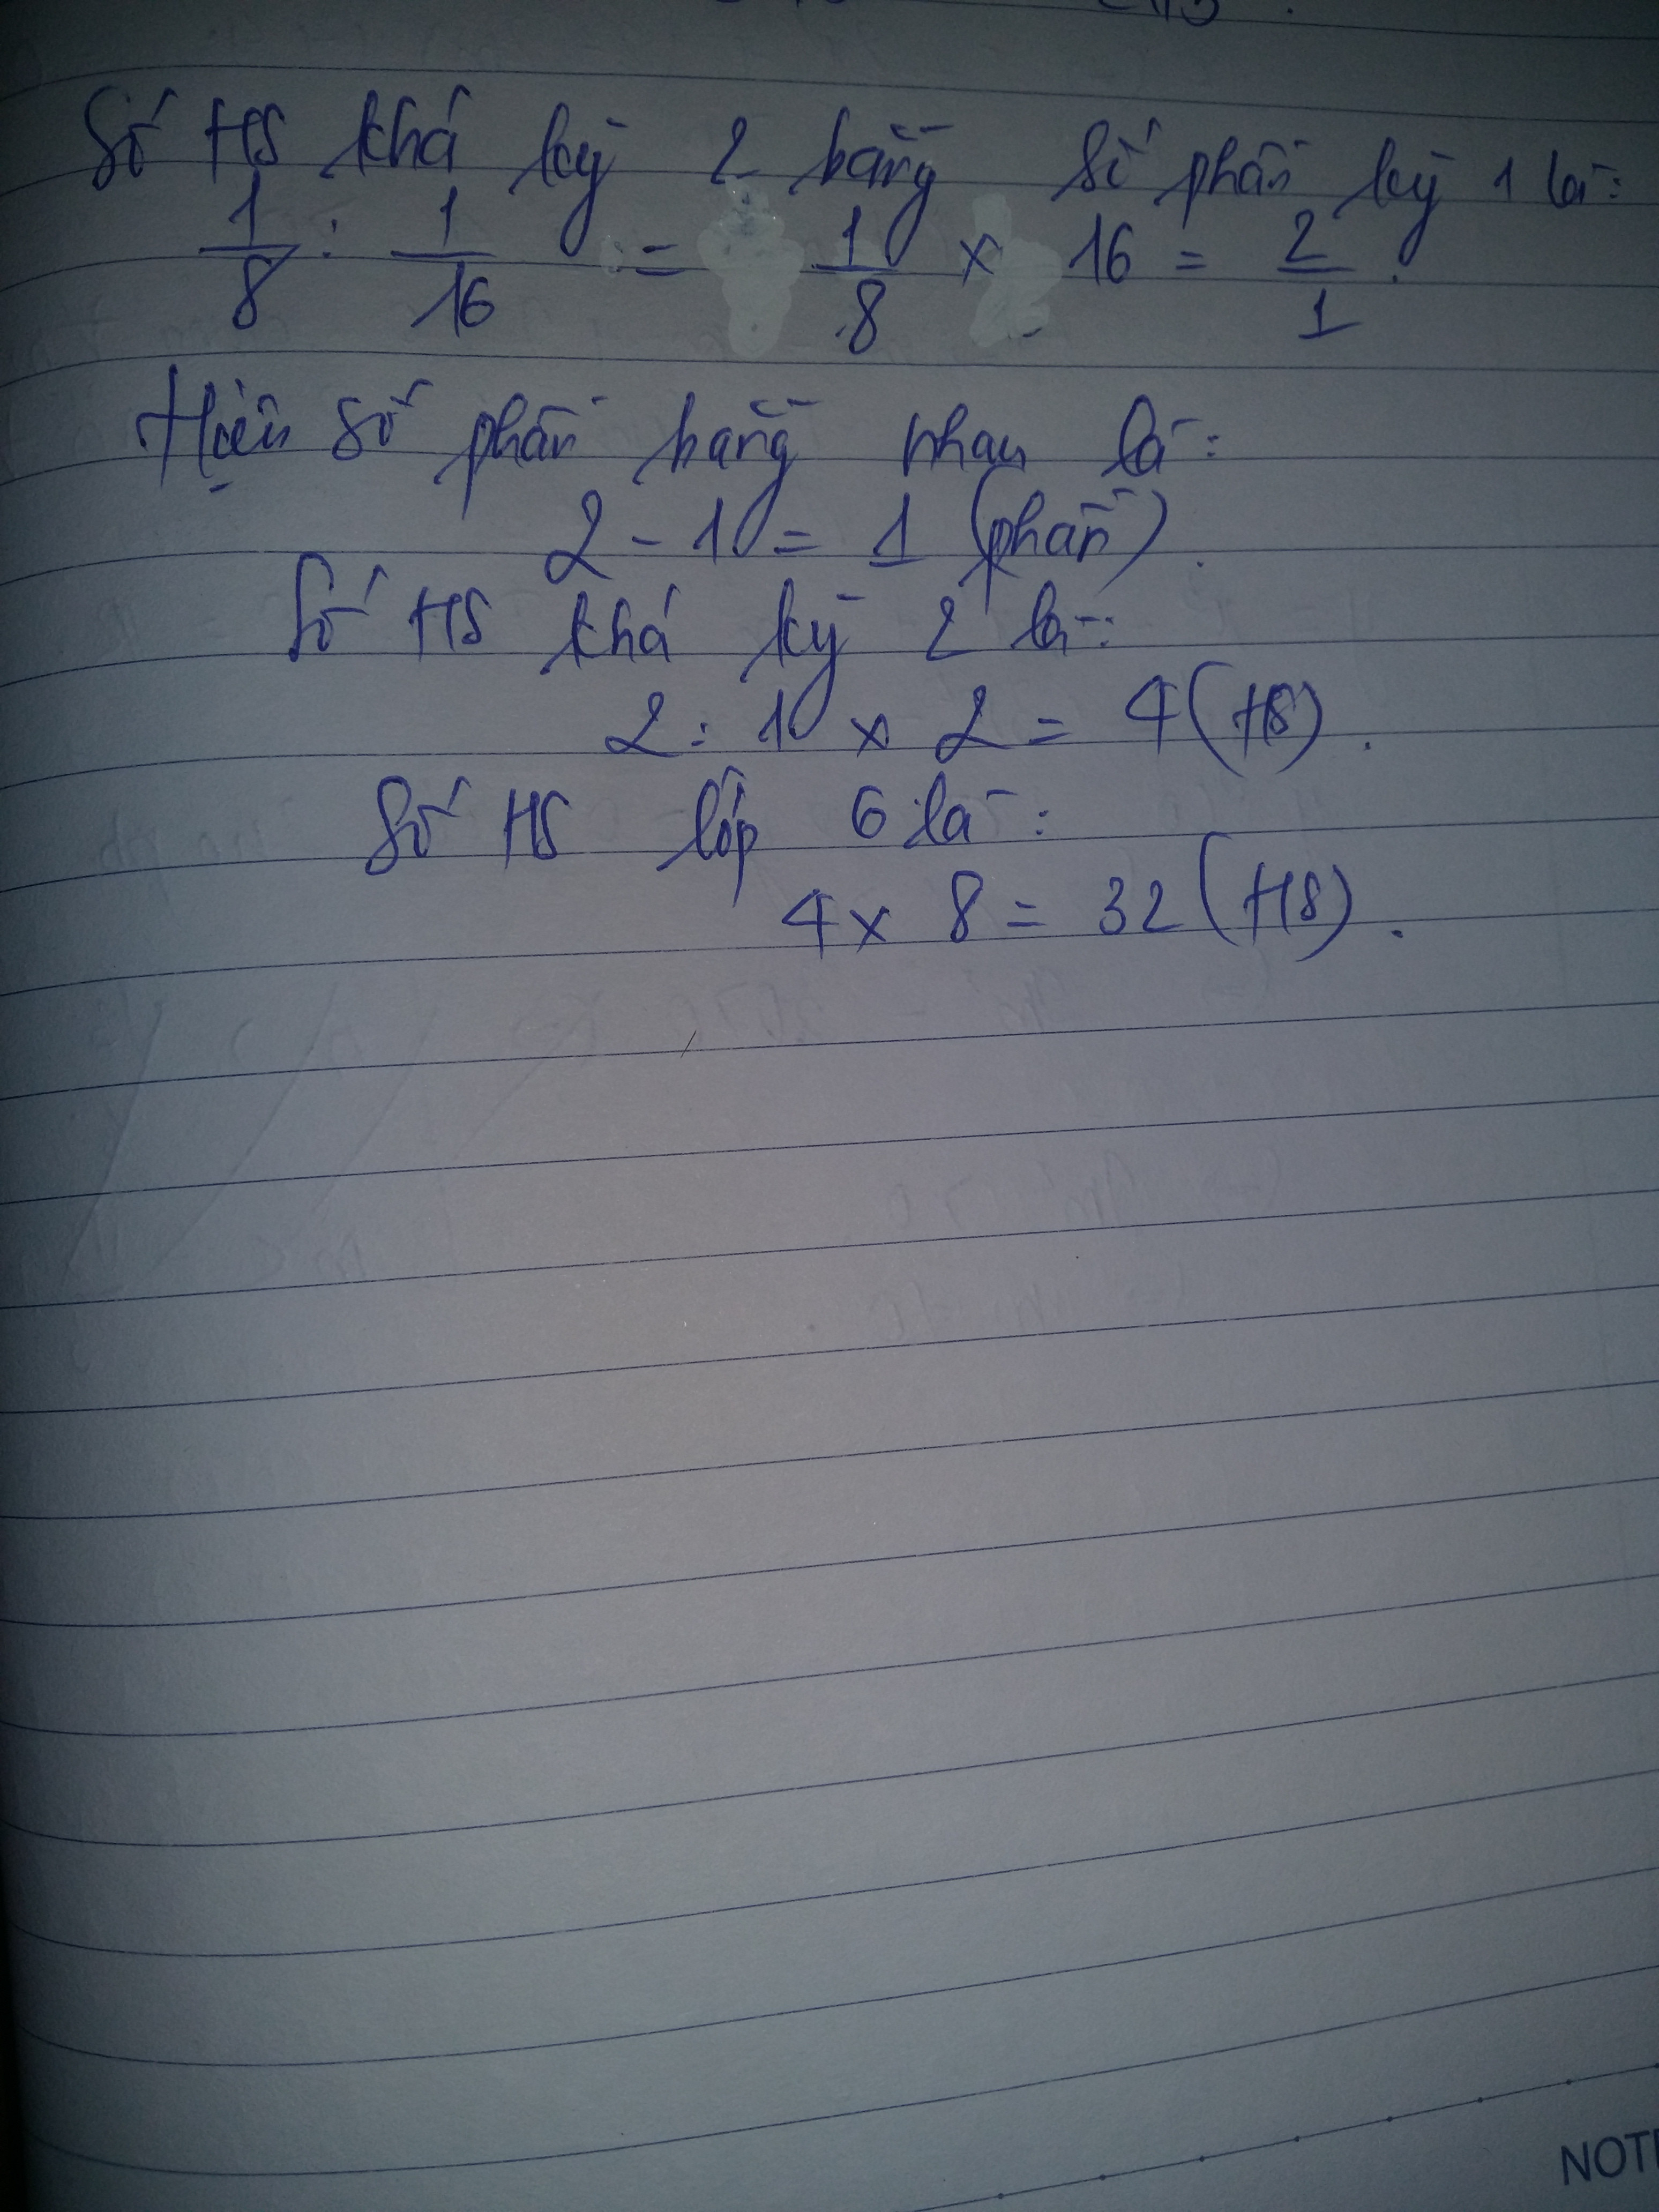 Số HS khá kỳ 2 bằng số phần kỳ 1 là:
1/8 : 1/16 = 1/8 x 16 = 2/1.
Hiệu số phần bằng nhau là:
2 - 1 = 1 (phần).
Số HS khá kỳ 2 là:
2 : 1 x 2 = 4 (HS).
Số HS lớp 6 là:
4 x 8 = 32 (HS).
NOT